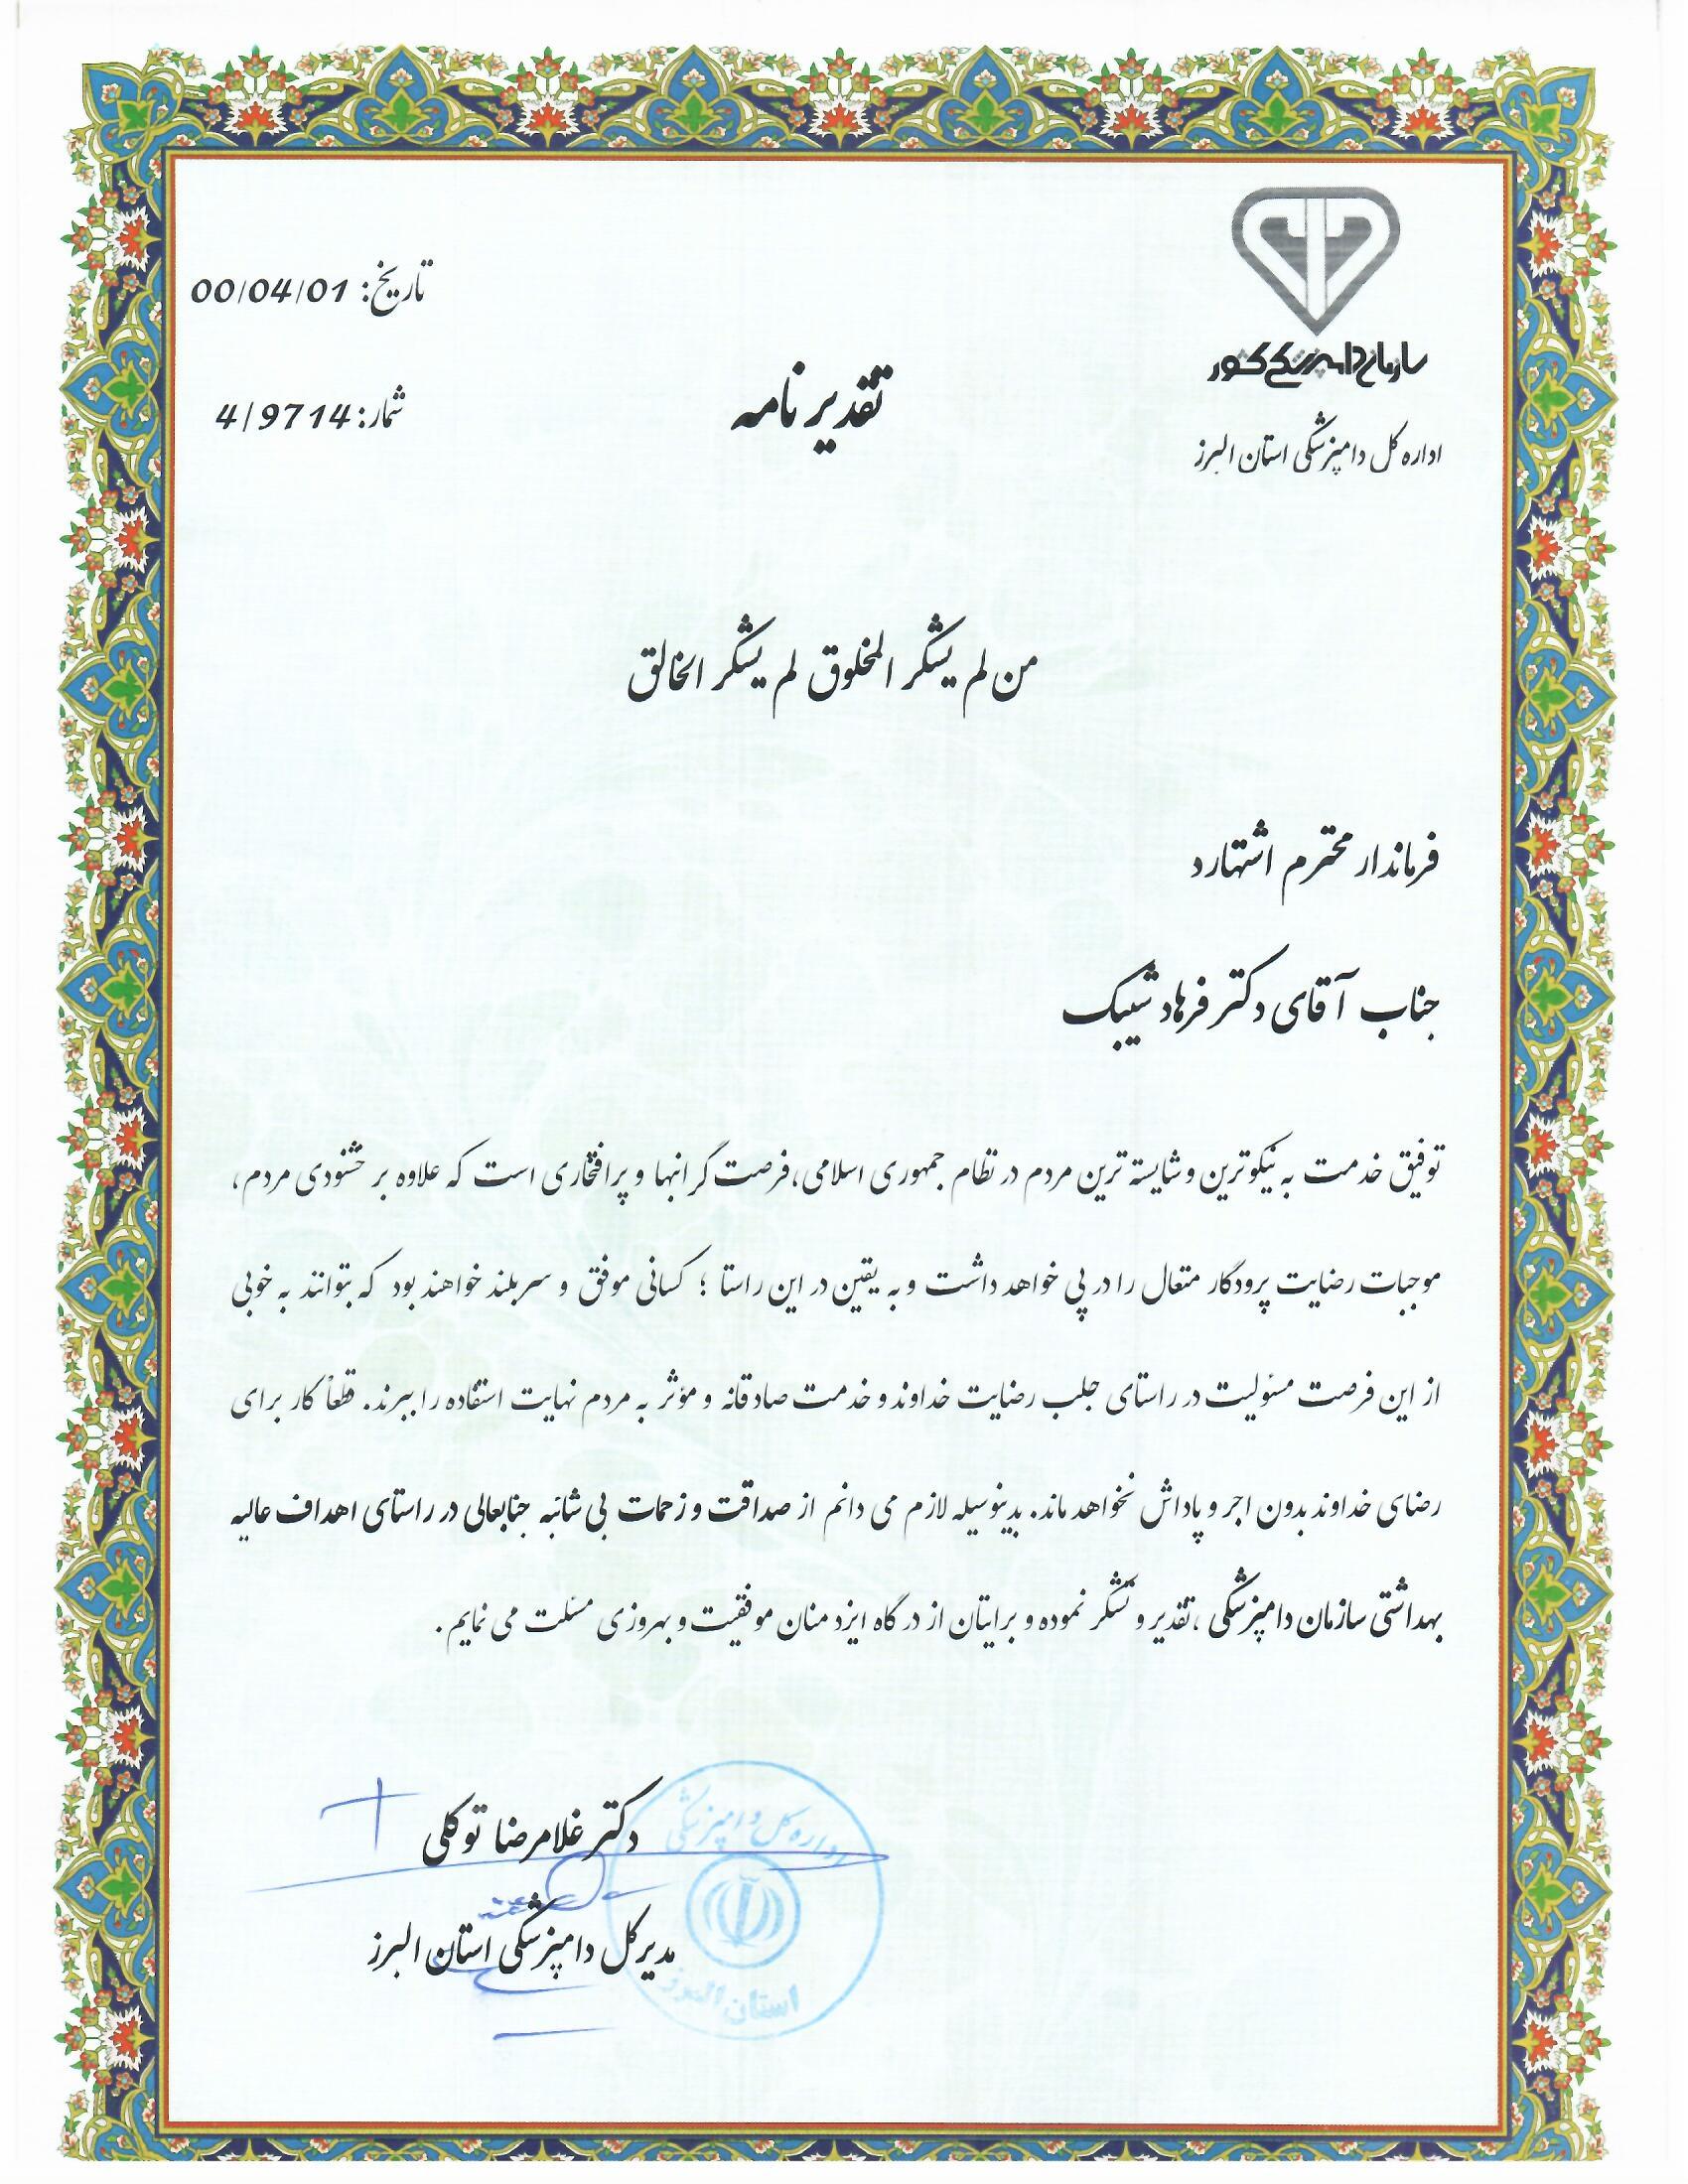 سازمان دامپزشکی کشور
اداره کل دامپزشکی استان البرز
تاریخ: 00/04/01
شمار: 4/9714
تقدیر نامه
من لم یشکر المخلوق لم یشکر الخالق
فرماندار محترم اشتهارد
جناب آقای دکتر فرهاد شیبک
توفیق خدمت به نیکوترین و شایسته ترین مردم در نظام جمهوری اسلامی،فرصت گرانبها و پرافتخاری است که علاوه بر خشنودی مردم،
موجبات رضایت پرودگار متعال را در پی خواهد داشت و به یقین در این راستا ؛ کسانی موفق و سربلند خواهند بود که بتوانند به خوبی
از این فرصت مسئولیت در راستای جلب رضایت خداوند و خدمت صادقانه و مؤثر به مردم نهایت استفاده را ببرند. قطعاً کار برای
رضای خداوند بدون اجر و پاداش نخواهد ماند. بدینوسیله لازم می دانم از صداقت و زحمات بی شائبه جنابعالی در راستای اهداف عالیه
بهداشتی سازمان دامپزشکی ،تقدیر و تشکر نموده و برایتان از درگاه ایزد منان موفقیت و بهروزی مسئلت می نمایم.
دکتر غلامرضا توکلی
مدیرکل دامپزشکی استان البرز
اداره کل دامپزشکی
استان البرز